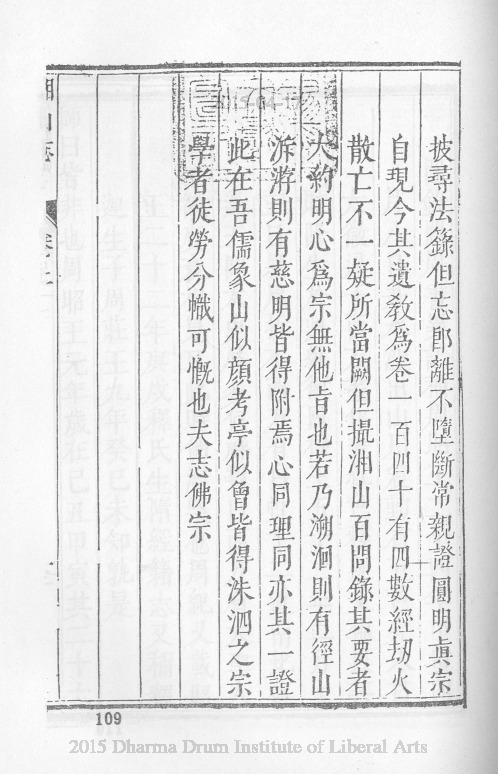 披尋法籙但忘郎離不墮斷常親證圓明眞宗
自現今其遺敎爲卷一百四十有四數經刼火
散亡不一疑所當闕但撮湘山百問錄其要者
大約明心爲宗無他旨也若乃溯洄則有徑山
泝游則有慈明皆得附焉心同理同亦其一證
此在吾儒象山似顔考亭似曾皆得洙泗之宗
學者徒勞分幟可慨也夫志佛宗
湘山志
卷之
109
2015 Dharma Drum Institute of Liberal Arts